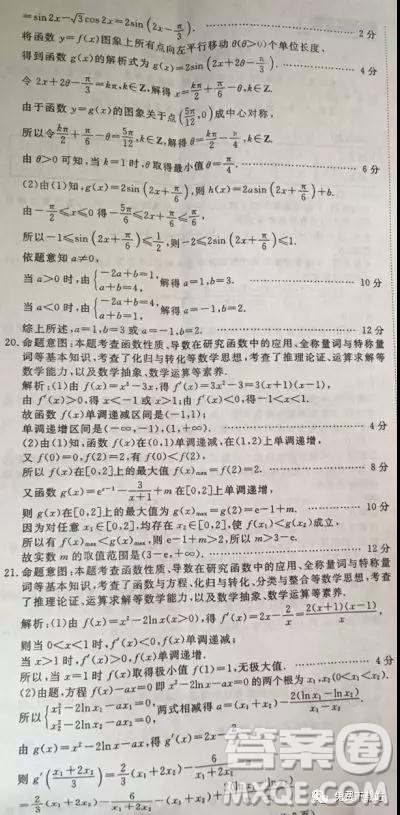 =sin 2x-√3cos 2x=2sin(2x-π/3). …… 2分
将函数 y=f(x)图象上所有点向左平行移动 θ(θ>0)个单位长度,
得到函数 g(x)的解析式为 g(x)=2sin(2x+2θ-π/3). …… 4分
令 2x+2θ-π/3=kπ,k∈Z,解得 x=kπ/2+π/6-θ,k∈Z.
由于函数 y=g(x)的图象关于点(5π/12,0)成中心对称,
所以令kπ/2+π/6-θ=5π/12,k∈Z,解得 θ=kπ/2-π/4,k∈Z.
由 θ>0 可知,当 k=1 时,θ取得最小值 θ=π/4. …… 6分
(2)由(1)知,g(x)=2sin(2x+π/6),则 h(x)=2asin(2x+π/6)+b.
由-π/2≤x≤0得-5π/6≤2x+π/6≤π/6,
所以-1≤sin(2x+π/6)≤1/2,则-2≤2sin(2x+π/6)≤1.
依题意知 a≠0,
当 a>0 时,由{-2a+b=1, a+b=4,解得 a=1,b=3. …… 10分
当 a<0 时,由{-2a+b=4, a+b=1,解得 a=-1,b=2.
综上所述,a=1,b=3 或 a=-1,b=2. …… 12分
20. 命题意图:本题考查函数性质、导数在研究函数中的应用、全称量词与特称量
词等基本知识,考查了化归与转化等数学思想,考查了推理论证、运算求解等
数学能力,以及数学抽象、数学运算等素养.
解析:(1)由 f(x)=x³-3x,得 f′(x)=3x²-3=3(x+1)(x-1),
由 f′(x)>0,得 x<-1 或 x>1;由 f′(x)<0,得-1<x<1.
故函数 f(x)单调递减区间是(-1,1);
单调递增区间是(-∞,-1),(1,+∞). …… 4分
(2)由(1)知,函数 f(x)在(0,1)单调递减,在(1,2)上单调递增,
又 f(0)=0,f(2)=2,有 f(0)<f(2),
所以 f(x)在[0,2]上的最大值 f(x)max=f(2)=2. …… 8分
又函数 g(x)=eˣ⁻¹-3/(x+1)+m 在[0,2]上单调递增,
则 g(x)在[0,2]上的最大值为 g(x)max=g(2)=e-1+m. …… 10分
因为对任意 x₁∈[0,2],均存在 x₂∈[0,2],使 f(x₁)<g(x₂)成立,
所以有 f(x)max<g(x)max,则 e-1+m>2,所以 m>3-e.
故实数 m 的取值范围是(3-e,+∞). …… 12分
21. 命题意图:本题考查函数性质、导数在研究函数中的应用、全称量词与特称量
词等基本知识,考查了函数与方程、化归与转化、分类与整合等数学思想,考查
了推理论证、运算求解等数学能力,以及数学抽象、数学运算等素养.
解析:(1)由 f(x)=x²-2ln x(x>0),得 f′(x)=2x-2/x=2(x+1)(x-1)/x,
则当 0<x<1 时,f′(x)<0,f(x)单调递减;
当 x>1 时,f′(x)>0,f(x)单调递增.
所以,当 x=1 时 f(x)取得极小值 f(1)=1,无极大值. …… 4分
(2)由题,方程 f(x)-ax=0 即 x²-2ln x-ax=0 的两个根为 x₁,x₂(0<x₁<x₂).
所以{x₁²-2ln x₁-ax₁=0, x₂²-2ln x₂-ax₂=0,两式相减得 a=(x₁+x₂)-2(ln x₁-ln x₂)/(x₁-x₂).
由 g(x)=x²-2ln x-ax,得 g′(x)=2x-
则 g′((x₁+2x₂)/3)=2/3(x₁+2x₂)-6/(x₁+2x₂)
=2/3(x₁+2x₂)-6/(x₁+2x₂)-(x₁+x₂)+
答案圈